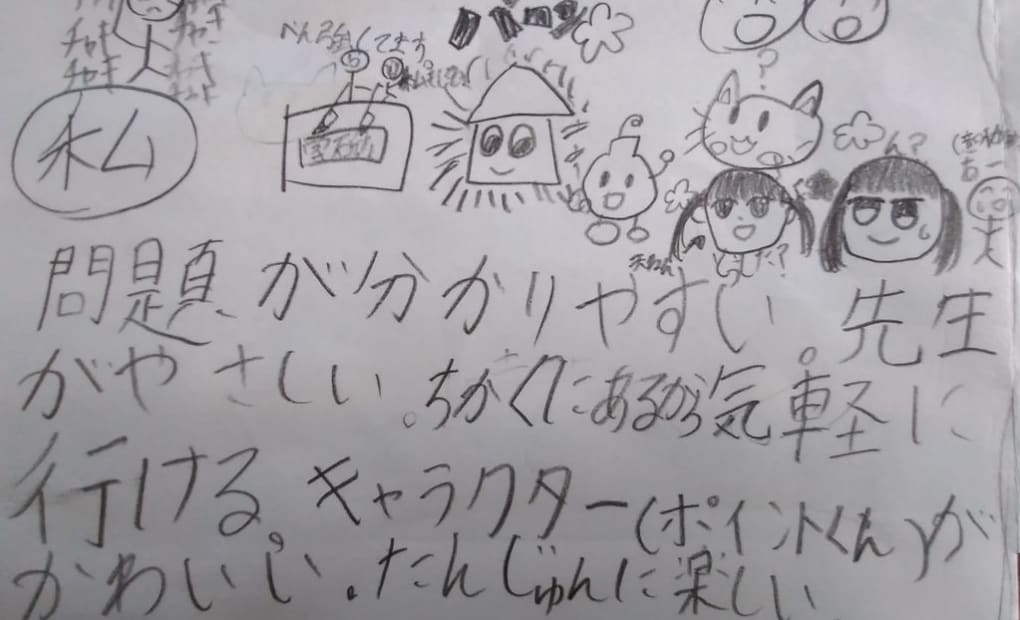 チャキ
チャキ
私
べん強してます。
ん?
どうした?
問題が分かりやすい。先生
がやさしい。ちかくにあるから気軽に
行ける。キャラクター(ポイントくん)が
かわいい。たんじゅんに楽しい